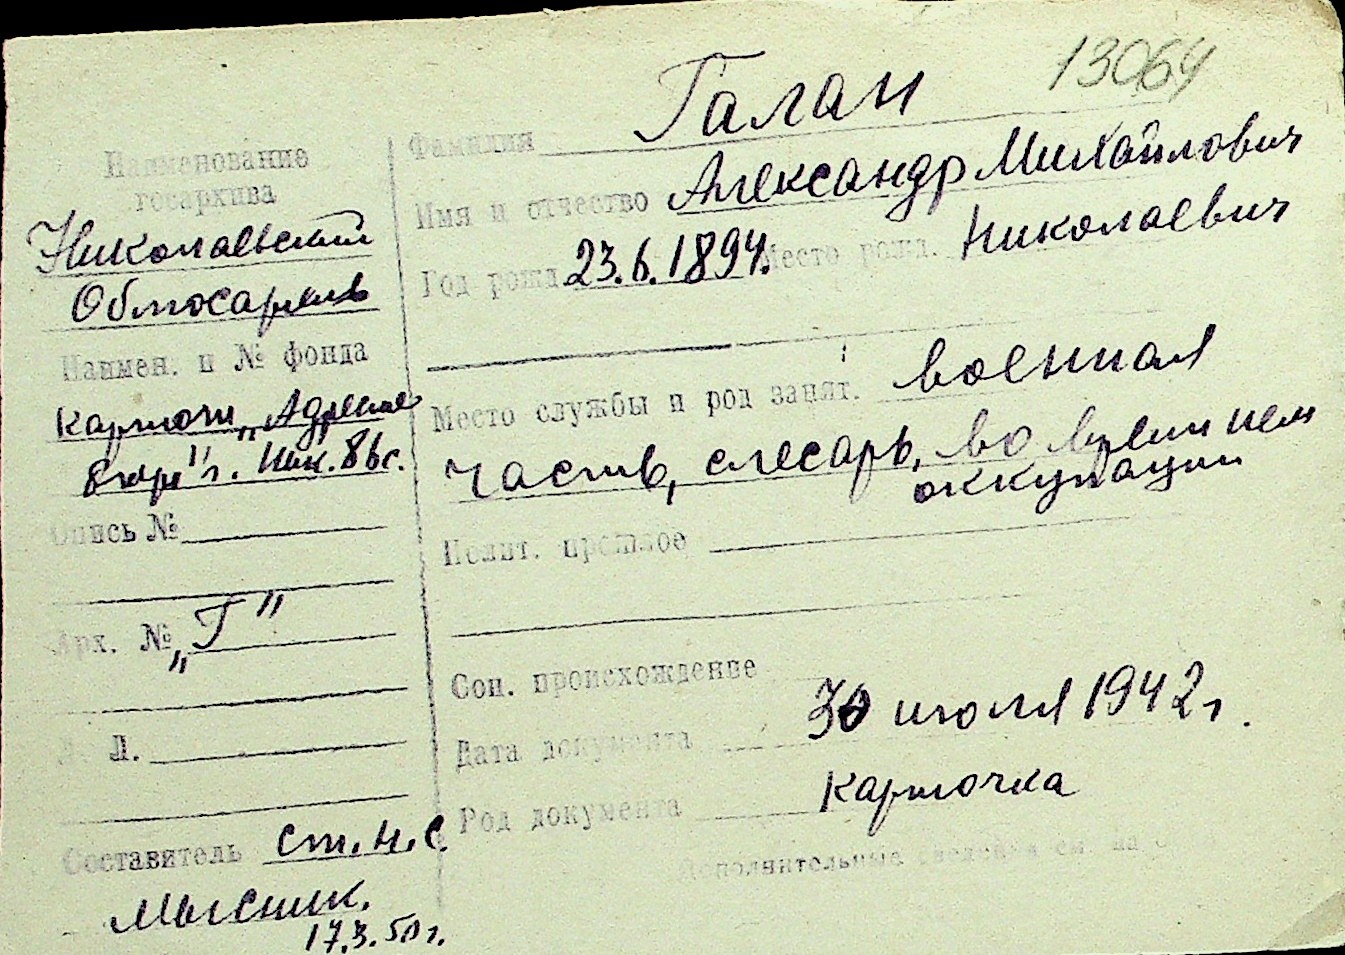 13064
Наименование
госархива
Николаевский
Облгосархив
Наимен. и № фонда
Картоти „Адресное
бюро" г. Ник. 86с.
Опись №
Арх. № „Г"
Л. Л.
Составитель ст. н. с.
Мысник.
17.3.50 г.
Фамилия Галан
Имя и отчество Александр Михайлович
Год рожд. 23.6.1894. Место рожд. Николаевич
Место службы и род занят. военная
часть, слесарь, во
оккупации
Полит. прошлое
Соц. происхождение
Дата документа 30 июля 1942 г.
Род документа карточка
Дополнительные сведения см. на